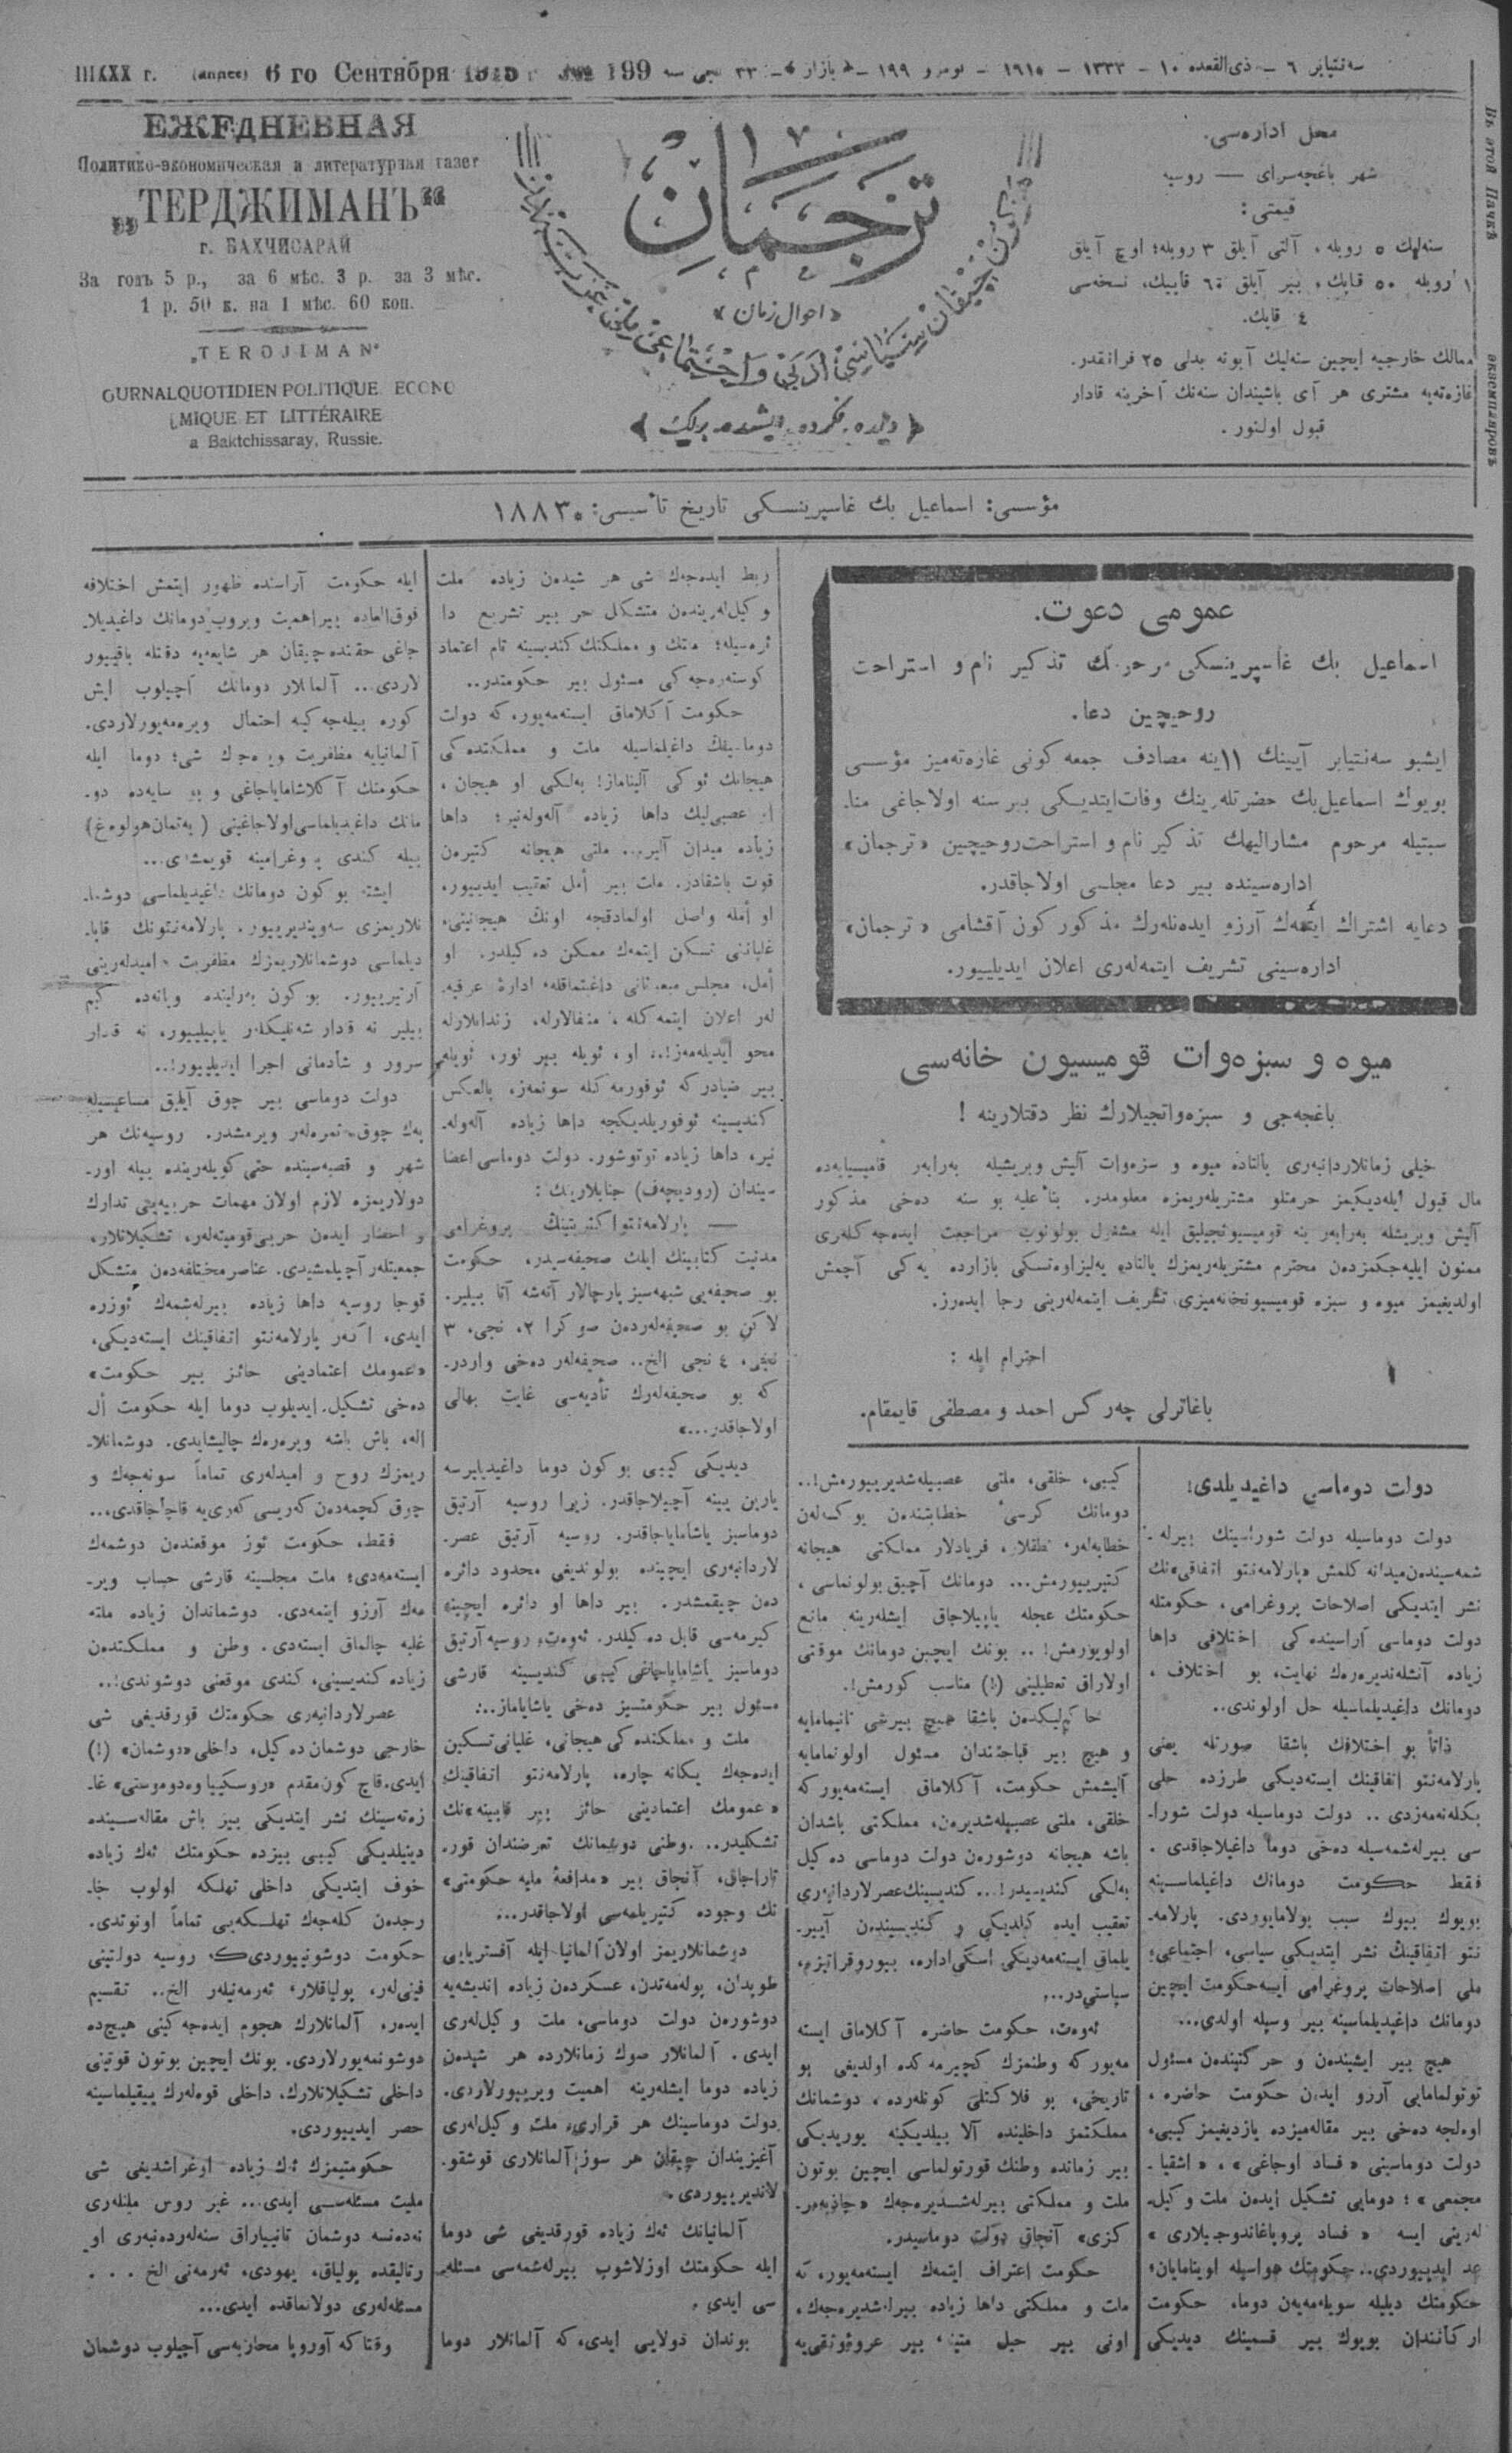 سه‌نتیابر ٦ – ذی القعده ١٠ – ١٣٣٣ – ١٩١٥ – نومرو ١٩٩ – « بازار » – ٣٣ نجی سنه
6 го Сентября 1915 г № 199
(annee)
ЕЖЕДНЕВНАЯ
Политико-экономическая и литературная газет
„ТЕРДЖИМАНЪ“
г. БАХЧИСАРАЙ
За годъ 5 р., за 6 мѣс. 3 р. за 3 мѣс.
1 р. 50 к. на 1 мѣс. 60 коп.
„TERDJIMAN“
OURNALQUOTIDIEN POLITIQUE ECONO
MIQUE ET LITTÉRAIRE
a Baktchissaray, Russie.
ترجمان
« احوال زمان »
« دیلده، فکرده، ایشده برلك »
محل اداره‌سی.
شهر باغچه‌سرای — روسیه
قیمتی:
سنه‌لیك ٥ روبله، آلتی آیلق ٣ روبله؛ اوچ آیلق
١ روبله ٥٠ قاپك، بیر آیلق ٦٠ قاپیك، نسخه‌سی
٤ قاپك.
ممالك خارجیه ایچین سنه‌لیك آبونه بدلی ٢٥ فرانقدر.
غازه‌ته‌یه مشتری هر آی باشیندان سنه‌نك آخرینه قادار
قبول اولنور.
Въ этой Пачкѣ
экземпляровъ
مؤسسی: اسماعیل بك غاسپرینسکی تاریخ تأسیسی: ١٨٨٣
عمومی دعوت.
اسماعیل بك غاسپرینسکی مرحومك تذکیر نام و استراحت
روحیچین دعا.
ایشبو سه‌نتیابر آیینك ١١ینه مصادف جمعه کونی غازه‌ته‌میز مؤسسی
بویوك اسماعیل بك حضرتلرینك وفات ایتدیکی بیر سنه اولاجاغی منا-
سبتیله مرحوم مشارالیهك تذکیر نام و استراحت روحیچین « ترجمان »
اداره‌سینده بیر دعا مجلسی اولاجاقدر.
دعایه اشتراك ایتمه‌ك آرزو ایده‌نله‌رك مذکور کون آقشامی « ترجمان »
اداره‌سینی تشریف ایتمه‌له‌ری اعلان ایدیلییور.
میوه و سبزه‌وات قومیسیون خانه‌سی
باغچه‌جی و سبزه‌واتجیلارك نظر دقتلارینه !
خیلی زمانلاردانبه‌ری یالتاده میوه و سزه‌وات آلیش ویریشیله به‌رابه‌ر قامیسیایه‌ده
مال قبول ایله‌دیکیمز حرمتلو مشتریله‌ریمزه معلومدر. بناءً علیه بو سنه ده‌خی مذکور
آلیش ویریشله به‌رابه‌ر ینه قومیسیونجیلیق ایله مشغول بولونوب مراجعت ایده‌جه‌کله‌ری
ممنون ایلیه‌جکمزدن محترم مشتریله‌ریمزك یالتاده یه‌لیزاوه‌تسکی بازارده یه‌کی آچمش
اولدیغیمز میوه و سبزه قومیسیونخانه‌میزی تشریف ایتمه‌له‌رینی رجا ایده‌رز.
احترام ایله :
باغاترلی چه‌رکس احمد و مصطفی قایمقام.
دولت دوماسی داغیدیلدی!
دولت دوماسیله دولت شوراسینك بیرله-
شمه‌سیندن میدانه کلمش «پارلامه‌نتو اتفاقی»نك
نشر ایتدیکی اصلاحات پروغرامی، حکومتله
دولت دوماسی آراسینده کی اختلافی داها
زیاده آتشله‌ندیره‌رك نهایت، بو اختلاف،
دومانك داغیدیلماسیله حل اولوندی..
ذاتاً بو اختلافك باشقا صورتله یعنی
پارلامه‌نتو اتفاقینك ایسته‌دیکی طرزده حلی
بکله‌نه‌مه‌زدی .. دولت دوماسیله دولت شورا-
سی بیرله‌شمه‌سیله ده‌خی دوما داغیلاجاقدی.
فقط حکومت دومانك داغیلماسینه
بویوك بیوك سبب بولامایوردی. پارلامه-
نتو اتفاقینك نشر ایتدیکی سیاسی، اجتماعی،
ملی اصلاحات پروغرامی ایسه حکومت ایچین
دومانك داغیدیلماسینه بیر وسیله اولدی...
هیچ بیر ایشیندن و حرکتیندن مسئول
توتولمامایی آرزو ایدن حکومت حاضره،
اولجه ده‌خی بیر مقاله‌میزده یازدیغیمز کیبی،
دولت دوماسینی « فساد اوجاغی »، « اشقیا
مجمعی » ؛ دومایی تشکیل ایده‌ن ملت وکیل-
له‌رینی ایسه « فساد پروپاغاندوجیلاری »
عد ایدییوردی.. حکومتك هواسیله اوینامایان؛
حکومتك دیلیله سویله‌مه‌یه‌ن دوما، حکومت
ارکانندان بویوك بیر قسمینك دیدیکی
کیبی، خلقی، ملتی عصبیله‌شدیرییورمش!..
دومانك کرسیٔ خطابتندن یوکسه‌له‌ن
خطابه‌لر، نطقلار، فریادلار مملکتی هیجانه
کتیرییورمش... دومانك آچیق بولونماسی،
حکومتك عجله یاپیلاجاق ایشله‌رینه مانع
اولویورمش! .. بونك ایچین دومانك موقتی
اولاراق تعطیلینی (!) مناسب کورمش!.
حاکیملیکدن باشقا هیچ بیرشی تانیمامایه
و هیچ بیر قباحتندان مسئول اولونمامایه
آلیشمش حکومت، آکلاماق ایسته‌مه‌یور که
خلقی، ملتی عصبیله‌شدیره‌ن، مملکتی باشدان
باشه هیجانه دوشوره‌ن دولت دوماسی ده‌کیل
به‌لکی کندیسیدر!... کندیسینك عصرلاردانبه‌ری
تعقیب ایده کلدیکی و کندیسیندن آییر-
یلماق ایسته‌مه‌دیکی اسکی اداره، بیوروقراتیزم،
سیاستی‌در...
ئه‌وه‌ت، حکومت حاضره آکلاماق ایسته
مه‌یور که وطنمزك کچیرمه‌کده اولدیغی بو
تاریخی، بو فلاکتلی کونله‌رده، دوشمانك
مملکتمز داخلینده آلا بیلدیکینه یوریدیکی
بیر زمانده وطنك قورتولماسی ایچین بوتون
ملت و مملکتی بیرله‌شدیره‌جه‌ك «جاذبه مر-
کزی» آنجاق دولت دوماسیدر.
حکومت اعتراف ایتمه‌ك ایسته‌مه‌یور، که
ملت و مملکتی داها زیاده بیرله‌شدیره‌جه‌ك،
اونی بیر حبل متین، بیر عروةوثقی‌یه
ربط ایده‌جه‌ك شی هر شیدن زیاده ملت
وکیل‌له‌ریندن متشکل حر بیر تشریع دا
ئره‌سیله؛ ملتك و مملکتك کندیسینه تام اعتماد
کوسته‌ره‌جه‌کی مسئول بیر حکومتدر..
حکومت آکلاماق ایسته‌مه‌یور، که دولت
دوماسینك داغیلماسیله ملت و مملکتده کی
هیجانك ئوکی آلیناماز! به‌لکی او هیجان،
او عصبی‌لیك داها زیاده آله‌وله‌نیر؛ داها
زیاده میدان آلیر... ملتی هیجانه کتیره‌ن
قوت باشقادر. ملت بیر أمل تعقیب ایدییور،
او أمله واصل اولمادقجه اونك هیجانینی،
غلیاننی تسکین ایتمه‌ك ممکن ده‌کیلدر. او
أمل، مجلس مبعوثانی داغیتماقله، ادارهٔ عرفیه
له‌ر اعلان ایتمه‌کله، منفالارله، زندانلارله
محو ایدیله‌مه‌ز!.. او، ئویله بیر نور، ئویله
بیر ضیادر که ئوفورمه‌کله سونمه‌ز، بالعکس
کندیسینه ئوفوریلدیکجه داها زیاده آله‌وله-
نیر، داها زیاده توتوشور. دولت دوماسی اعضا
سیندان (رودیچه‌ف) جنابلارینك :
— پارلامه‌نتو اکثریتینك پروغرامی
مدنیت کتابینك ایلك صحیفه‌سیدر، حکومت
بو صحیفه‌یی شبهه‌سیز پارچالار آتشه آتا بیلیر.
لاکن بو صحیفه‌له‌ردن صوکرا ٢، نجی، ٣
نجی، ٤ نجی الخ.. صحیفه‌له‌ر ده‌خی واردر-
که بو صحیفه‌له‌رك تأدیه‌سی غایت بهالی
اولاجاقدر...»
دیدیکی کیبی بو کون دوما داغیدیلیرسه
یارین یینه آچیلاجاقدر. زیرا روسیه آرتیق
دوماسیز یاشامایاجاقدر. روسیه آرتیق عصر-
لاردانبه‌ری ایچینده بولوندیغی محدود دائره
ده‌ن چیقمشدر. بیر داها او دائره ایچینه
کیرمه‌سی قابل ده‌کیلدر. ئه‌وه‌ت، روسیه آرتیق
دوماسیز یاشامایاجاغی کیبی کندیسینه قارشی
مسئول بیر حکومتسیز ده‌خی یاشایاماز..
ملت و مملکنده کی هیجانی، غلیانی تسکین
ایده‌جه‌ك یکانه چاره، پارلامه‌نتو اتفاقینك
« عمومك اعتمادینی حائز بیر قابینه »نك
تشکلیدر... وطنی دوشمانك تعرضندان قور-
تاراجاق، آنجاق بیر « مدافعهٔ ملیه حکومتی»
نك وجوده کتیریلمه‌سی اولاجاقدر...
دوشمانلاریمز اولان آلمانیا ایله آفستریایی
طوپدان، پوله‌مه‌تدن، عسکردن زیاده اندیشه‌یه
دوشوره‌ن دولت دوماسی، ملت وکیل‌له‌ری
ایدی. آلمانلار صوك زمانلارده هر شیدن
زیاده دوما ایشله‌رینه اهمیت ویرییورلاردی.
دولت دوماسینك هر قراری، ملت وکیل‌له‌ری
آغیزیندان چیقان هر سوز آلمانلاری قوشقو-
لاندیرییوردی.
آلمانیانك ئه‌ك زیاده قورقدیغی شی دوما
ایله حکومتك اوزلاشوب بیرله‌شمه‌سی مسئله-
سی ایدی.
بوندان دولایی ایدی، که آلمانلار دوما
ایله حکومت آراسنده ظهور ایتمش اختلافه
فوق‌العاده بیر اهمیت ویروب دومانك داغیدیلا-
جاغی حقنده چیقان هر شایعه‌یه دقتله باقییور
لاردی... آلمانلار دومانك آچیلوب ایش
کوره بیله‌جه‌کینه احتمال ویره‌مه‌یورلاردی.
آلمانیایه مظفریت ویره‌جك شی؛ دوما ایله
حکومتك آکلاشامایاجاغی و بو سایه‌ده دو-
مانك داغیدیلماسی اولاجاغینی ( به‌تمان هولوه‌غ)
بیله کندی پروغرامینه قویمشدی...
ایشته بو کون دومانك داغیدیلماسی دوشما-
نلاریمزی سه‌ویندیرییور. پارلامه‌نتونك قاپا-
دیلماسی دوشمانلاریمزك مظفریت امیدله‌رینی
آرتیرییور. بو کون به‌رلینده ویانه‌ده کیم
بیلیر نه قادار شه‌نلیکله‌ر یاپیلییور، نه قادار
سرور و شادمانی اجرا ایدیلییور!..
دولت دوماسی بیر چوق آیلیق مساعیسیله
په‌ك چوق ثمره‌له‌ر ویرمشدر. روسیه‌نك هر
شهر و قصبه‌سینده حتی کویله‌رینده بیله اور-
دولاریمزه لازم اولان مهمات حربیه‌یی تدارك
و احضار ایده‌ن حربی قومیته‌لر، تشکیلاتلار،
جمعیتله‌ر آچیلمشیدی. عناصر مختلفه‌دن متشکل
قوجا روسیه داها زیاده بیرله‌شمه‌ك ئوزره
ایدی، اگه‌ر پارلامه‌نتو اتفاقینك ایسته‌دیکی،
«عمومك اعتمادینی حائز بیر حکومت»
ده‌خی تشکیل ایدیلوب دوما ایله حکومت أل
اله، باش باشه ویره‌ره‌ك چالیشایدی. دوشمانلا-
ریمزك روح و امیدله‌ری تماماً سونه‌جه‌ك و
چوق کچمه‌دن که‌ریسی که‌ری‌یه قاچاجاقدی...
فقط، حکومت ئوز موقعندن دوشمه‌ك
ایسته‌مه‌دی؛ ملت مجلسینه قارشی حساب ویر-
مه‌ك آرزو ایتمه‌دی. دوشماندان زیاده ملته
غلبه چالماق ایسته‌دی. وطن و مملکتدن
زیاده کندیسینی، کندی موقعنی دوشوندی!..
عصرلاردانبه‌ری حکومتك قورقدیغی شی
خارجی دوشمان ده‌کیل، داخلی «دوشمان» (!)
ایدی. قاچ کون مقدم «روسکییا وه‌دوموستی» غا-
زه‌ته‌سینك نشر ایتدیکی بیر باش مقاله‌سینده
دینیلدیکی کیبی بیزده حکومتك ئه‌ك زیاده
خوف ایتدیکی داخلی تهلکه اولوب خا-
رجدن کله‌جه‌ك تهلکه‌یی تماماً اونوتدی.
حکومت دوشونییوردی‌که، روسیه دولتینی
فینی‌لر، پولیاقلار، ئه‌رمه‌نیله‌ر الخ.. تقسیم
ایده‌ر، آلمانلارك هجوم ایده‌جه‌کینی هیچ‌ده
دوشونمه‌یورلاردی. بونك ایچین بوتون قوتینی
داخلی تشکیلاتلارك، داخلی قوه‌له‌رك ییقیلماسینه
حصر ایدییوردی.
حکومتیمزك ئه‌ك زیاده اوغراشدیغی شی
ملیت مسئله‌سی ایدی... غیر روس ملتله‌ری
نه‌ده‌نسه دوشمان تانییاراق سنه‌له‌رده‌نبه‌ری او
رتالیقده پولیاق، یهودی، ئه‌رمه‌نی الخ ...
مسئله‌له‌ری دولانماقده ایدی...
وقتا که آوروپا محاربه‌سی آچیلوب دوشمان